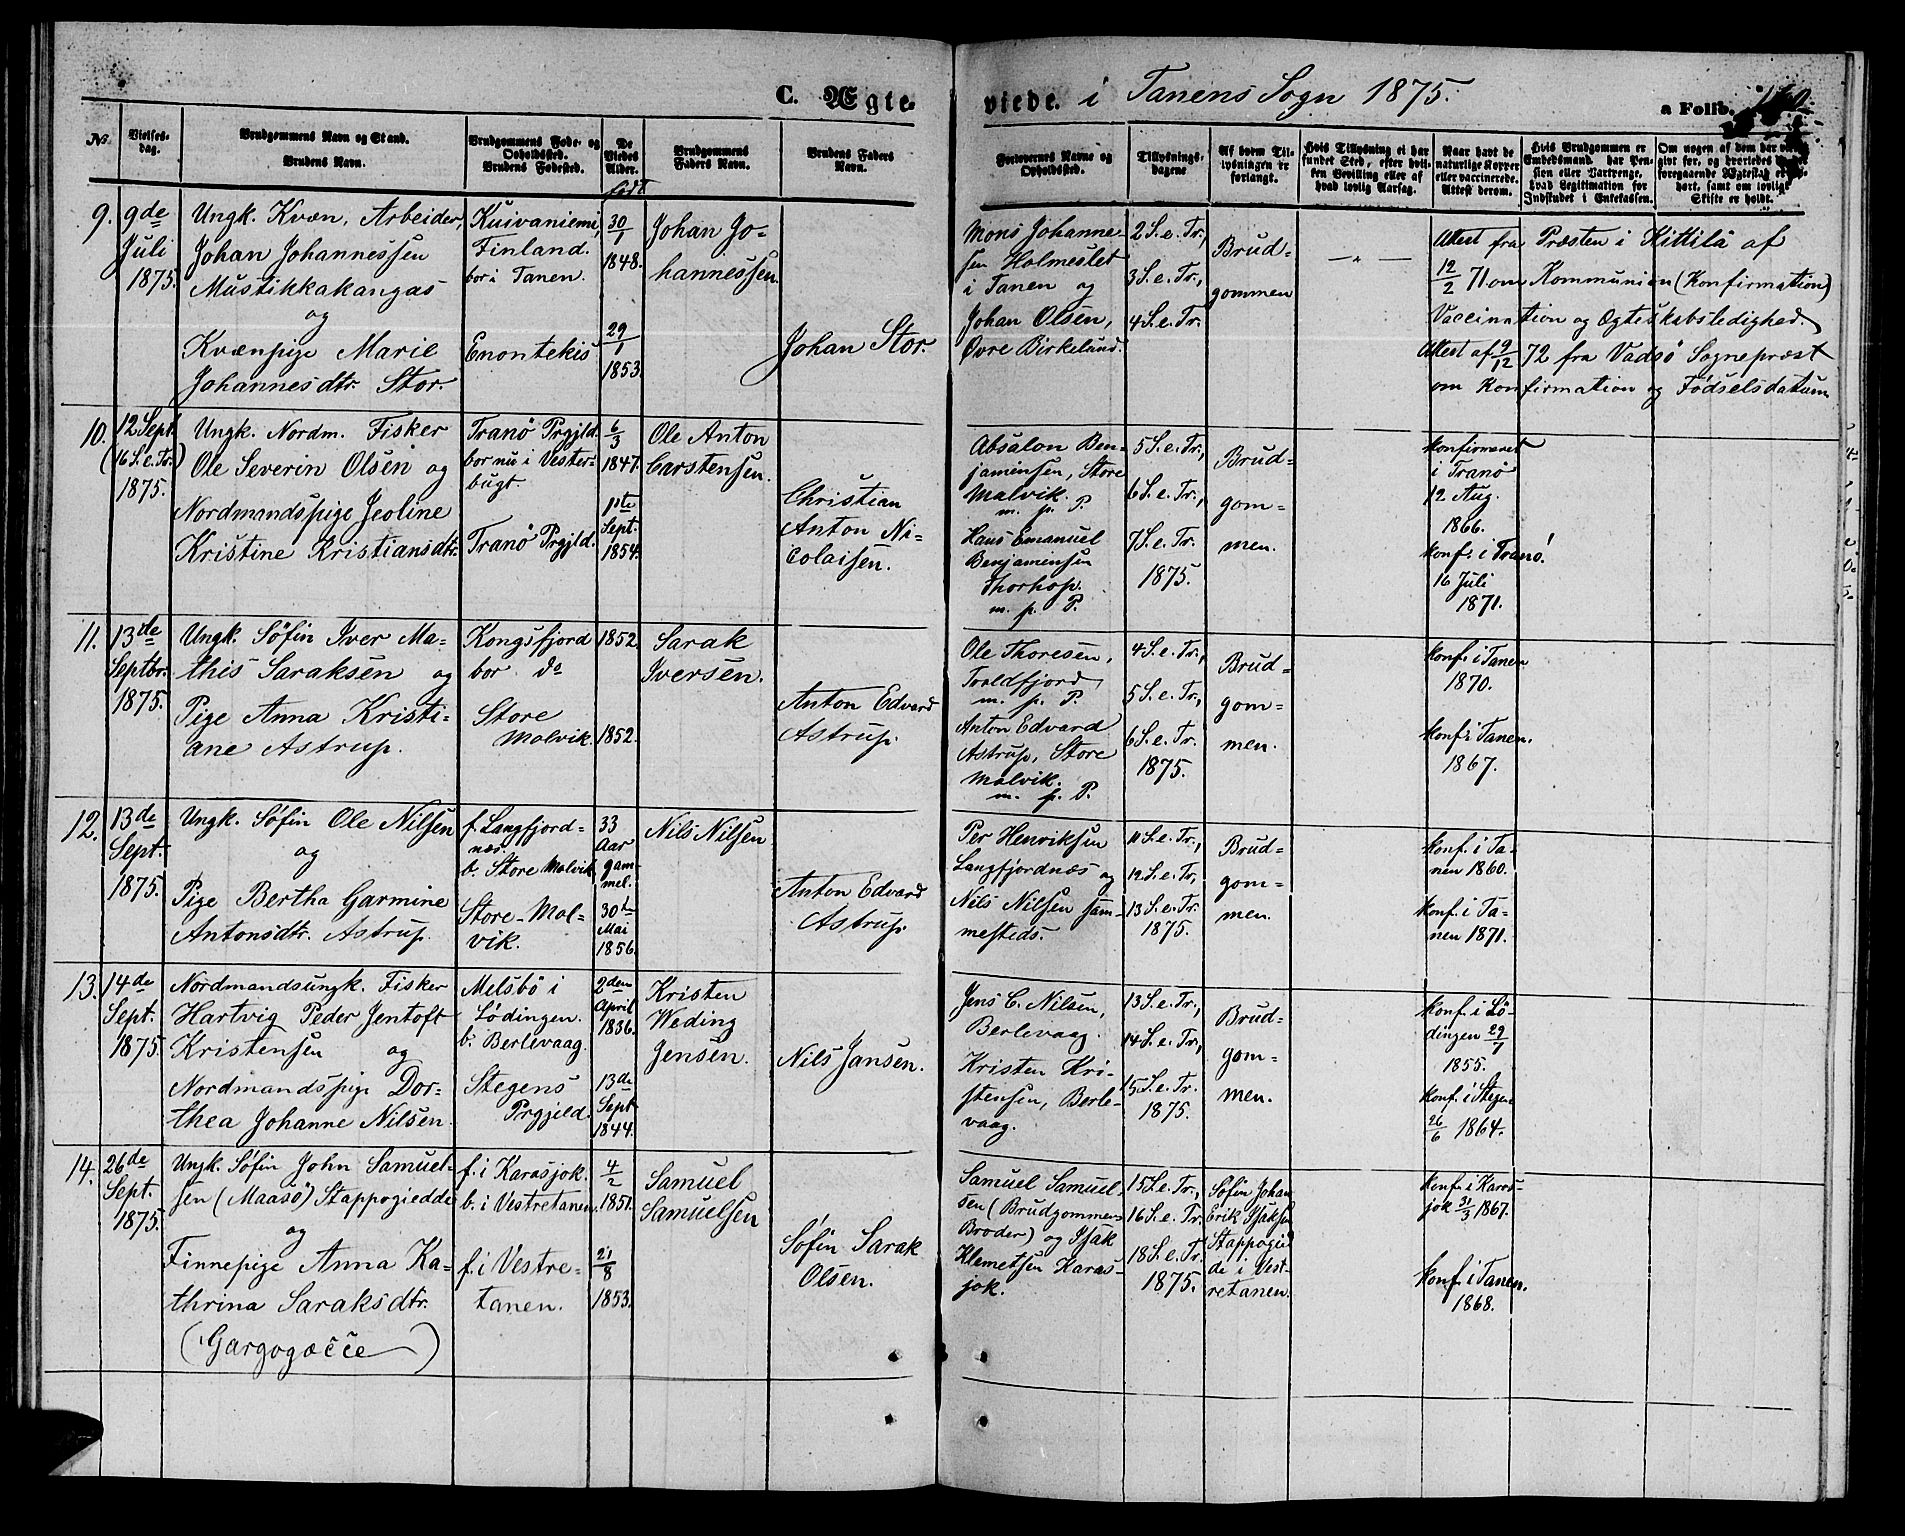 C. Ægteviede i Tanens Sogn 1875.
a Folio.
No.
Vielses-
dag.
Brudgommens Navn og Stand.
Brudens Navn.
Brudgommens Føde- og
Opholdssted.
Brudens Fødested.
De
Viedes
Alder.
født
Brudgommens
Faders Navn.
Brudens Faders
Navn.
Forlovernes Navne og
Opholdssted.
Tillysnings-
dagene
Af hvem Til-
lysningen er
forlangt.
Hvis Tillysning ei har
fundet Sted, efter hvil-
ken Bevilling eller af
hvad lovlig Aarsag.
Naar havt de
naturlige Kopper
eller vaccinerede.
Attest derom.
Hvis Brudgommen er
Embedsmand, har Pen-
sion eller Vartpenge,
hvad Legitimation for
Indskudet i Enkekassen.
Om nogen af dem har været
gift før, og hvorledes
foregaaende Ægteskab er
hørt, samt om lovligt
Skifte er holdt.
9.
9de
Juli
1875.
Ungk. Kvæn, Arbeider,
Johan Johannessen
Mustikkakangas
og
Kvænpige Marie
Johannesdtr. Stor.
Kuivaniemi,
Finland.
bor i Tanen.
Enontekis
30/1
1848.
29/1
1853.
Johan Jo-
hannessen.
Johan Stor.
Mons Johanne-
sen Holmeslet
i Tanen og
Johan Olsen,
Øvre Birkelund.
2 S. e. Tr.,
3 S. e. Tr.,
4 S. e. Tr.
Brud-
gommen
— " —
Attest fra Præsten i Kittilä af
12/2 71 om Kommunion (Konfirmation)
Vaccination og Ægteskabsledighed.
Attest af 9/12 72 fra Vadsö Sognepræst
om Konfirmation og Fødselsdatum
10.
12 Sept.
(16 S. e. Tr.)
1875.
Ungk. Nordm. Fisker
Ole Severin Olsen og
Nordmandspige Jeoline
Kristine Kristiansdtr.
Tranö Prgjld.
bor nu i Vester-
bugt.
Tranö Prgjld.
6/3
1847.
11te
Sept.
1854.
Ole Anton
Carstensen.
Christian
Anton Ni-
colaisen.
Absalon Ben-
jaminsen, Store
Malvik.
m. p. P.
Hans Emanuel
Benjaminsen
Thorhop.
m. p. P.
5 S. e. Tr.,
6 S. e. Tr.,
7 S. e. Tr.
1875.
Brud-
gom-
men.
konfirmeret
i Tranö
12 Aug.
1866.
konf. i Tranö.
16 Juli
1871.
11.
13de
Septbr.
1875.
Ungk. Söfin Iver Ma-
this Saraksen og
Pige Anna Kristi-
ane Astrup.
Kongsfjord
bor do
Store
Malvik.
1852.
1852.
Sarak
Iversen.
Anton Edvard
Astrup.
Ole Thoresen,
m. p. P.
Anton Edvard
Astrup, Store
Malvik.
m. p. P.
4 S. e. Tr.,
5 S. e. Tr.,
6 S. e. Tr.
1875.
Brud-
gom-
men.
konf. i Tanen
1870.
konf. i Tanen.
1867.
12.
13de
Sept.
1875.
Ungk. Söfin Ole Nilsen
og
Pige Bertha Garmine
Antonsdtr. Astrup.
f. Langfjord-
næs.
b. Store Malvik
Store-Mal-
vik.
33
Aar
gam-
mel.
30te
Mai
1856.
Nils Nilsen
Anton Edvard
Astrup.
Per Henriksen
Langfjordnæs og
Nils Nilsen sam-
mesteds.
11 S. e. Tr.,
12 S. e. Tr,
13 S. e. Tr.
1875.
Brud-
gom-
men.
konf. i Ta-
nen 1860.
konf. i Ta-
nen 1871.
13.
14de
Sept.
1875.
Nordmandsungk. Fisker
Hartvig Peder Jentoft
Kristensen og
Nordmandspige Dor-
thea Johanne Nilsen.
Melsbö i
Lödingen.
b. Berlevaag.
Stegens
Prgjeld.
2den
April
1836.
13de
Sept
1844.
Kristen
Weding
Jensen.
Nils Jansen.
Jens C. Nilsen,
Berlevaag.
Kristen Kri-
stensen, Berle-
vaag.
13 S. e. Tr.,
14 S. e. Tr.,
15 S. e. Tr.
1875.
Brud-
gom-
men.
konf. i Lö-
dingen 29/7
1855.
konf. i Stegen
26/6 1864.
14.
26de
Sept.
1875.
Ungk. Söfin John Samuel-
sen (Maasö) Stappogiedde
og
Finnepige Anna Ka-
thrina Saraksdtr.
(Gargogæčče)
f. i Karasjok.
b. i Vestretanen.
f. i Vestre-
tanen.
4/2
1851.
21/8
1853.
Samuel
Samuelsen
Söfin Sarak
Olsen.
Samuel Samuel-
sen (Brudgommens
Broder) og Isak
Klemetsen Karas-
jok.
15 S. e. Tr.,
16 S. e. Tr.
18 S. e. Tr.
1875.
Söfin Johan
Erik Isaksen
Stappogied-
de i Vest-
retanen.
konf. i Karas-
jok 31/3 1867.
konf. i Tanen.
1868.